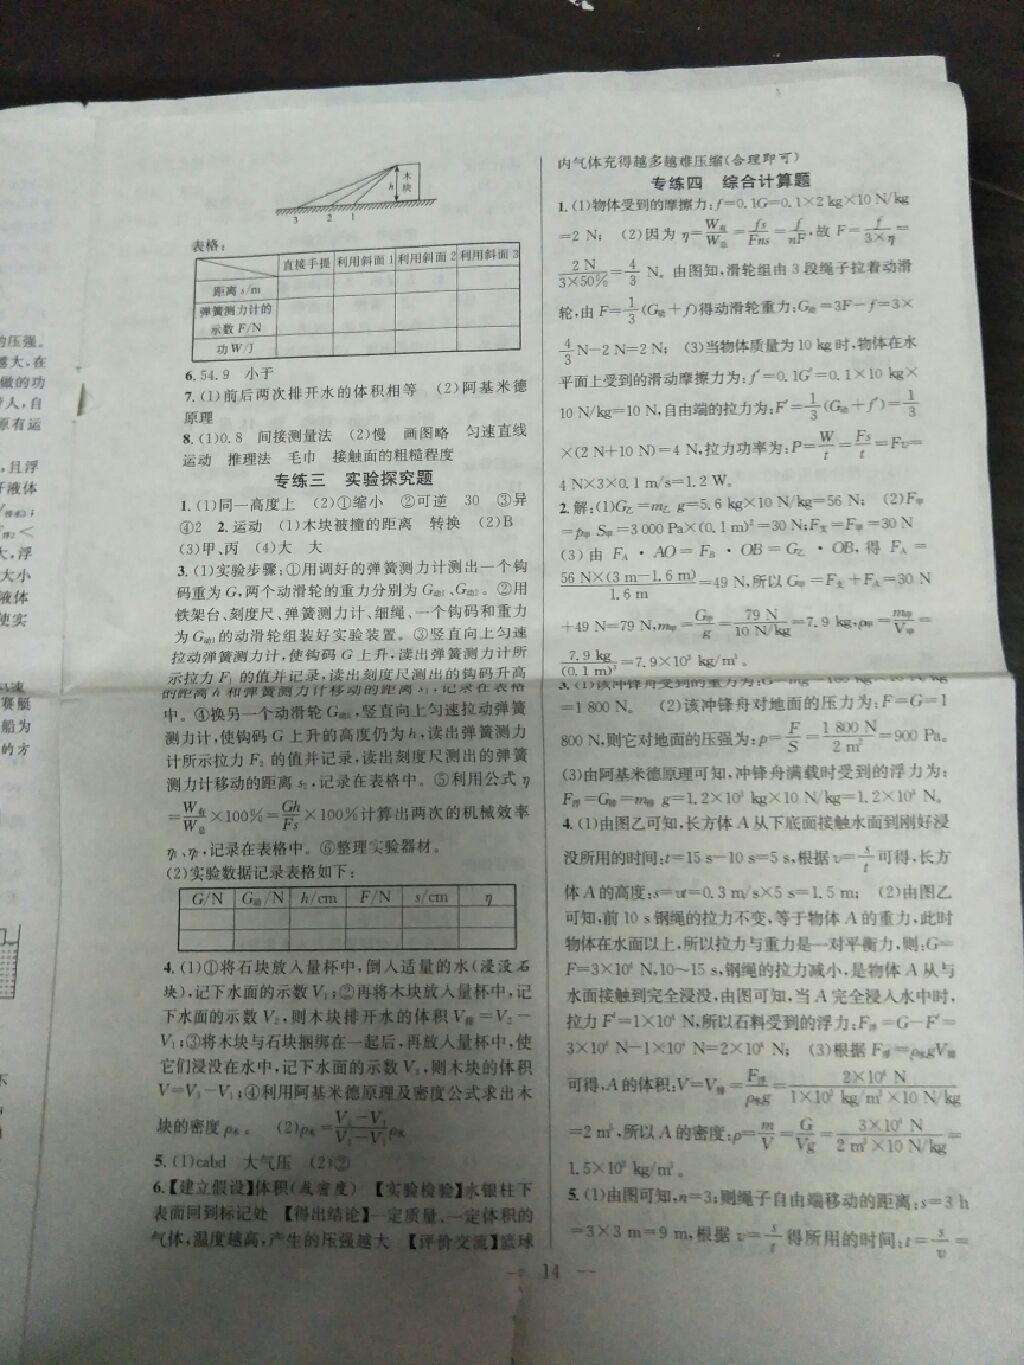 木块
h
3 2 1
表格:
直接手提 利用斜面1 利用斜面2 利用斜面3
距离 s/m
弹簧测力计的
示数 F/N
功W/J
6.54.9 小于
7.(1)前后两次排开水的体积相等 (2)阿基米德
原理
8.(1)0.8 间接测量法 (2)慢 画图略 匀速直线
运动 推理法 毛巾 接触面的粗糙程度
专练三 实验探究题
1.(1)同一高度上 (2)①缩小 ②可逆 30 ③异
④2 2.运动 (1)木块被撞的距离 转换 (2)B
(3)甲、丙 (4)大 大
3.(1)实验步骤:①用调好的弹簧测力计测出一个钩
码重为G,两个动滑轮的重力分别为G动1、G动2。 ②用
铁架台、刻度尺、弹簧测力计、细绳、一个钩码和重力
为G动1的动滑轮组装好实验装置。③竖直向上匀速
拉动弹簧测力计,使钩码G上升,读出弹簧测力计所
示拉力F₁的值并记录,读出刻度尺测出的钩码升高
的距离h和弹簧测力计移动的距离s₁,记录在表格
中。④换另一个动滑轮G动2,竖直向上匀速拉动弹簧
测力计,使钩码G上升的高度仍为h,读出弹簧测力
计所示拉力F₂的值并记录,读出刻度尺测出的弹簧
测力计移动的距离s₂,记录在表格中。⑤利用公式η
=W有/W总×100%=Gh/Fs×100%计算出两次的机械效率
η₁、η₂,记录在表格中。⑥整理实验器材。
(2)实验数据记录表格如下:
G/N G动/N h/cm F/N s/cm η
4.(1)①将石块放入量杯中,倒入适量的水(浸没石
块),记下水面的示数V₁;②再将木块放入量杯中,记
下水面的示数V₂,则木块排开水的体积V排=V₂-
V₁;③将木块与石块捆绑在一起后,再放入量杯中,使
它们浸没在水中,记下水面的示数V₃,则木块的体积
V=V₃-V₁;④利用阿基米德原理及密度公式求出木
块的密度ρ木。 (2)ρ木=(V₂-V₁)/(V₃-V₁)ρ水
5.(1)cabd 大气压 (2)②
6.【建立假设】体积(或密度) 【实验检验】水银柱下
表面回到标记处 【得出结论】一定质量、一定体积的
气体,温度越高,产生的压强越大 【评价交流】篮球
内气体充得越多越难压缩(合理即可)
专练四 综合计算题
1.(1)物体受到的摩擦力:f=0.1G=0.1×2 kg×10 N/kg
=2 N; (2)因为η=W有/W总=fs/Fns=f/nF,故F=f/3×η=
2 N/3×50%=4/3 N。由图知,滑轮组由3段绳子拉着动滑
轮,由F=1/3(G动+f)得动滑轮重力:G动=3F-f=3×
4/3 N-2 N=2 N; (3)当物体质量为10 kg时,物体在水
平面上受到的滑动摩擦力为:f′=0.1G′=0.1×10 kg×
10 N/kg=10 N,自由端的拉力为:F′=1/3(G动+f′)=1/3
×(2 N+10 N)=4 N,拉力功率为:P=W/t=Fs/t=Fv=
4 N×3×0.1 m/s=1.2 W。
2.解:(1)G乙=m乙g=5.6 kg×10 N/kg=56 N; (2)F甲
=p甲S甲=3 000 Pa×(0.1 m)²=30 N;F支=F甲=30 N
(3)由 F_A·AO=F_B·OB=G乙·OB,得 F_A=
56 N×(3 m-1.6 m)/1.6 m=49 N,所以G甲=F支+F_A=30 N
+49 N=79 N,m甲=G甲/g=79 N/10 N/kg=7.9 kg,ρ甲=m甲/V甲=
7.9 kg/(0.1 m)³=7.9×10³ kg/m³。
3.(1)该冲锋舟受到的重力为:G=mg=180 kg×10 N/kg
=1 800 N。 (2)该冲锋舟对地面的压力为:F=G=1
800 N,则它对地面的压强为:p=F/S=1 800 N/2 m²=900 Pa。
(3)由阿基米德原理可知,冲锋舟满载时受到的浮力为:
F浮=G排=m排g=1.2×10³ kg×10 N/kg=1.2×10⁴ N。
4.(1)由图乙可知,长方体A从下底面接触水面到刚好浸
没所用的时间:t=15 s-10 s=5 s,根据v=s/t可得,长方
体A的高度:s=vt=0.3 m/s×5 s=1.5 m; (2)由图乙
可知,前10 s钢绳的拉力不变,等于物体A的重力,此时
物体在水面以上,所以拉力与重力是一对平衡力,则:G=
F=3×10⁴ N,10~15 s,钢绳的拉力减小,是物体A从与
水面接触到完全浸没,由图可知,当A完全浸入水中时,
拉力F′=1×10⁴ N,所以石料受到的浮力:F浮=G-F′=
3×10⁴ N-1×10⁴ N=2×10⁴ N; (3)根据F浮=ρ水gV排
可得,A的体积:V=V排=F浮/ρ水g=2×10⁴ N/1×10³ kg/m³×10 N/kg
=2 m³,所以A的密度:ρ=m/V=G/Vg=3×10⁴ N/2 m³×10 N/kg=
1.5×10³ kg/m³。
5.(1)由图可知,n=3;则绳子自由端移动的距离:s=3 h
=3×3 m=9 m,根据v=s/t得所用的时间:t=s/v=
— 14 —